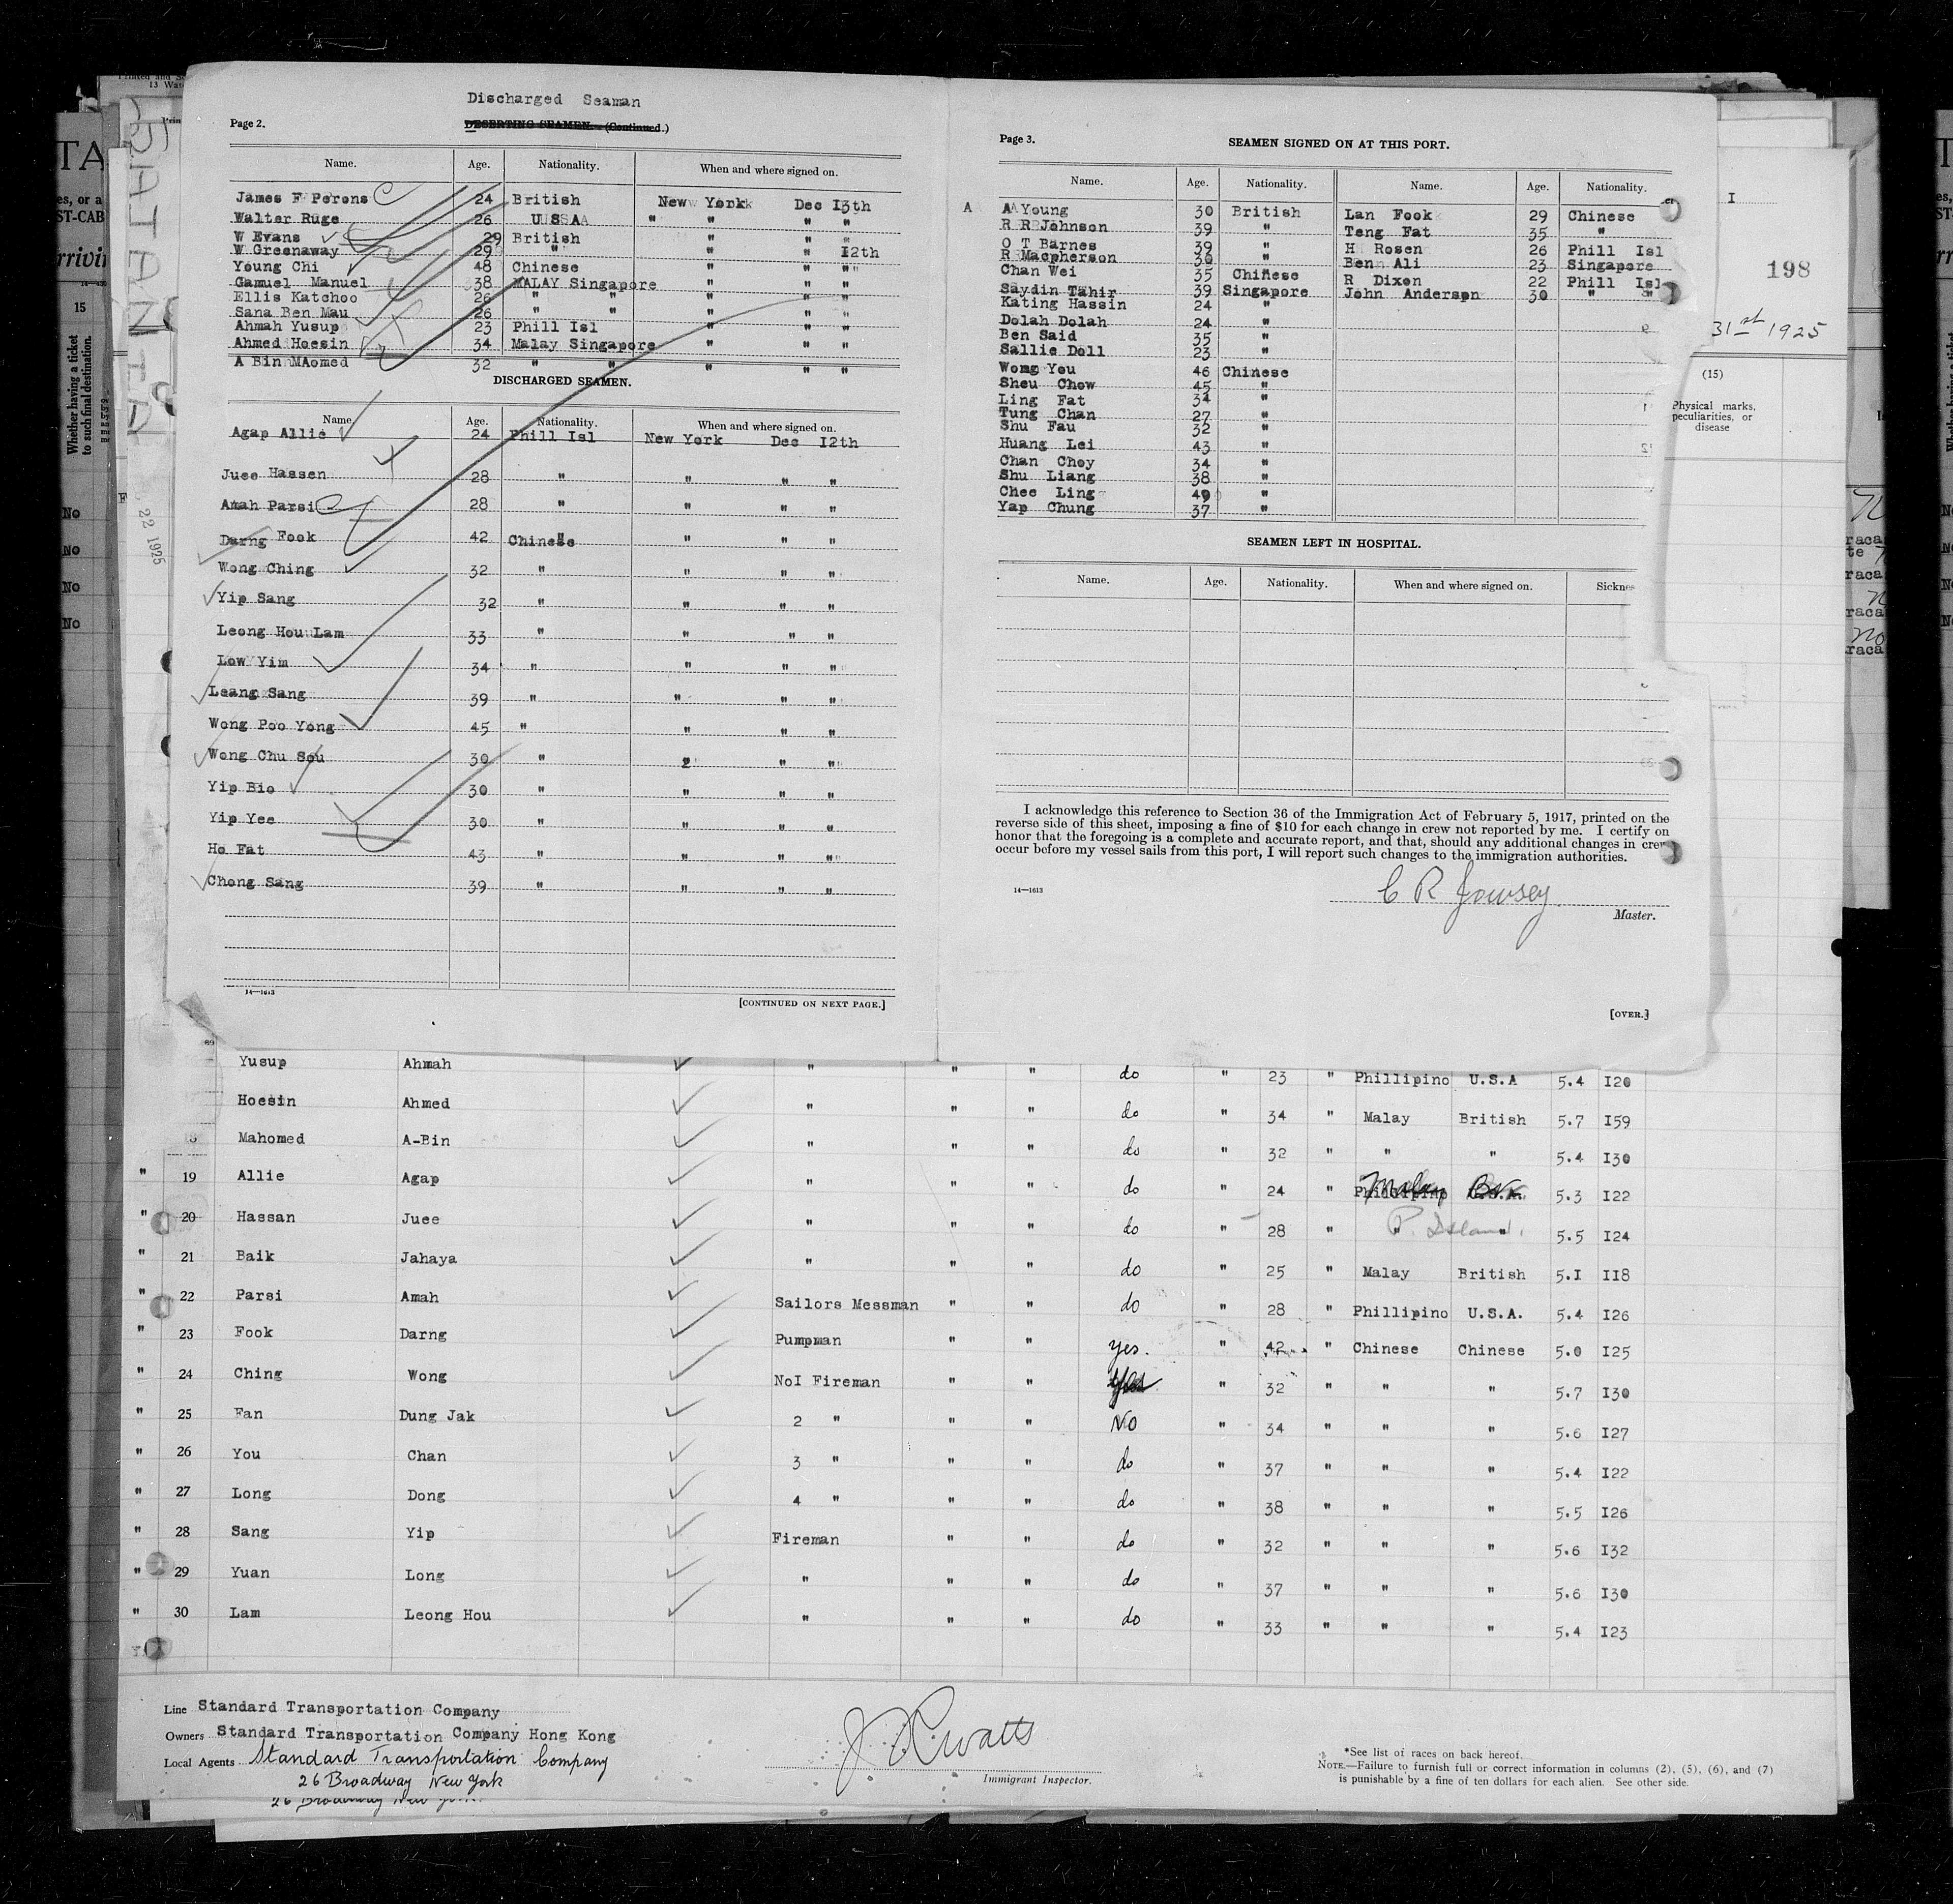 Discharged Seaman
Page 2. DESERTING SEAMEN. (Continued.)
Name. Age. Nationality. When and where signed on.
James F Perons 24 British New York Dec 13th
Walter Ruge 26 U S A " " "
W Evans 29 British " " "
W Greenaway 29 " " " 12th
Young Chi 48 Chinese " " "
Gamuel Manuel 38 MALAY Singapore " " "
Ellis Katchoo 26 " " " " "
Sana Ben Mau 26 " " " " "
Ahmah Yusup 23 Phill Isl " " "
Ahmed Hoesin 34 Malay Singapore " " "
A Bin MAomed 32 " " " " "
DISCHARGED SEAMEN.
Name Age. Nationality. When and where signed on.
Agap Allie 24 Phill Isl New York Dec 12th
Juee Hassen 28 " " " "
Amah Parsi 28 " " " "
Darng Fook 42 Chinese " " "
Wong Ching 32 " " " "
Yip Sang 32 " " " "
Leong Hou Lam 33 " " " "
Low Yim 34 " " " "
Leang Sang 39 " " " "
Wong Poo Yong 45 " " " "
Wong Chu Sou 30 " 2 " "
Yip Bio 30 " " " "
Yip Yee 30 " " " "
Ho Fat 43 " " " "
Chong Sang 39 " " " "
14—1613
[CONTINUED ON NEXT PAGE.]
Page 3. SEAMEN SIGNED ON AT THIS PORT.
Name. Age. Nationality. Name. Age. Nationality.
A A Young 30 British Lan Fook 29 Chinese
R R Johnson 39 " Teng Fat 35 "
O T Barnes 39 " H Rosen 26 Phill Isl
R Macpherson 30 " Ben Ali 23 Singapore
Chan Wei 35 Chinese R Dixon 22 Phill Isl
Saydin Tahir 39 Singapore John Anderson 30 " "
Kating Hassin 24 "
Dolah Dolah 24 "
Ben Said 35 "
Sallie Doll 23 "
Wong You 46 Chinese
Sheu Chow 45 "
Ling Fat 34 "
Tung Chan 27 "
Shu Fau 32 "
Huang Lei 43 "
Chan Choy 34 "
Shu Liang 38 "
Chee Ling 49 "
Yap Chung 37 "
SEAMEN LEFT IN HOSPITAL.
Name. Age. Nationality. When and where signed on.
I acknowledge this reference to Section 36 of the Immigration Act of February 5, 1917, printed on the
reverse side of this sheet, imposing a fine of $10 for each change in crew not reported by me. I certify on
honor that the foregoing is a complete and accurate report, and that, should any additional changes in crew
occur before my vessel sails from this port, I will report such changes to the immigration authorities.
14—1613
C R Jowsey
Master.
[OVER.]
I
198
31st 1925
(15)
Physical marks,
peculiarities, or
disease
15
Whether having a ticket
to such final destination.
No
No
No
No
22 1925
Yusup Ahmah " " " do " 23 " Phillipino U.S.A 5.4 I20
Hoesin Ahmed " " " do " 34 " Malay British 5.7 I59
Mahomed A-Bin " " " do " 32 " " " 5.4 I30
" 19 Allie Agap " " " do " 24 " Phillipino U.S.A. 5.3 I22
" 20 Hassan Juee " " " do " 28 " P. Island. 5.5 I24
" 21 Baik Jahaya " " " do " 25 " Malay British 5.I II8
" 22 Parsi Amah Sailors Messman " " do " 28 " Phillipino U.S.A. 5.4 I26
" 23 Fook Darng Pumpman " " yes. " 42 " Chinese Chinese 5.0 I25
" 24 Ching Wong NoI Fireman " " " 32 " " " 5.7 I30
" 25 Fan Dung Jak 2 " " " NO " 34 " " " 5.6 I27
" 26 You Chan 3 " " " do " 37 " " " 5.4 I22
" 27 Long Dong 4 " " " do " 38 " " " 5.5 I26
" 28 Sang Yip Fireman " " do " 32 " " " 5.6 I32
" 29 Yuan Long " " " do " 37 " " " 5.6 I30
" 30 Lam Leong Hou " " " do " 33 " " " 5.4 I23
Line Standard Transportation Company
Owners Standard Transportation Company Hong Kong
Local Agents Standard Transportation Company
26 Broadway New York
26 Broadway New York
J R Watts
Immigrant Inspector.
*See list of races on back hereof.
NOTE.—Failure to furnish full or correct information in columns (2), (5), (6), and (7)
is punishable by a fine of ten dollars for each alien. See other side.